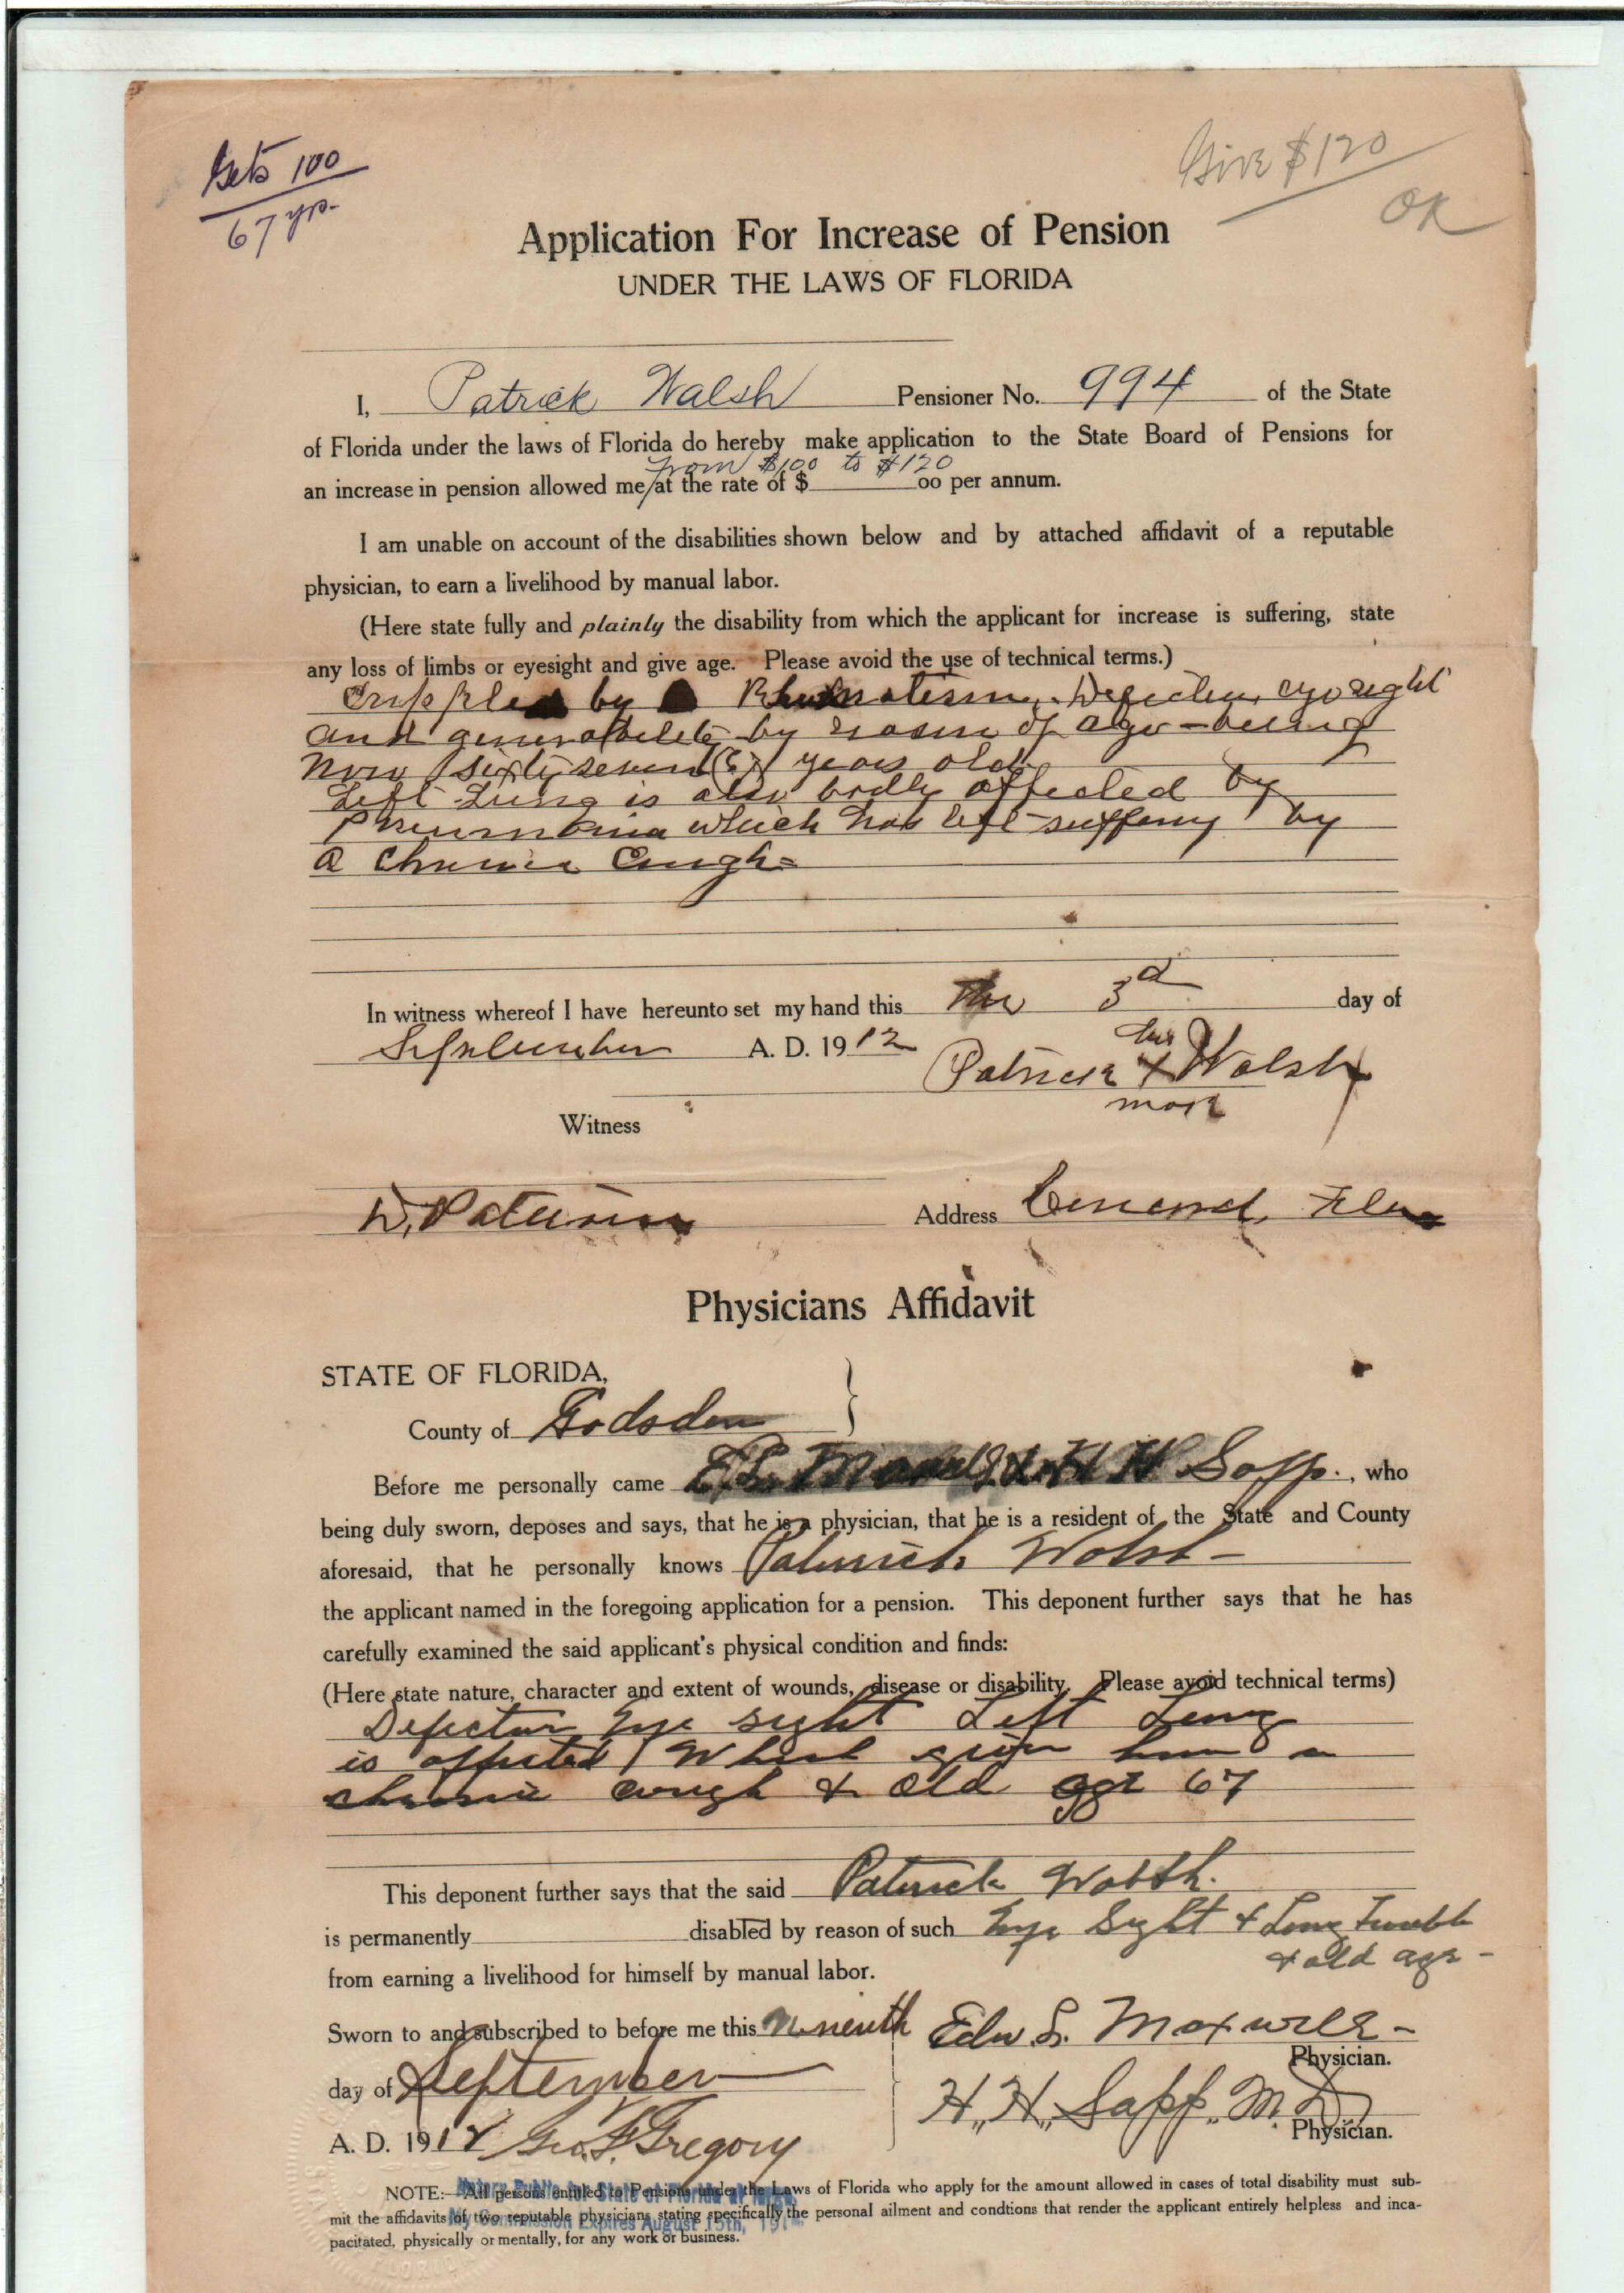 Gets 100
67 yrs.
Give $120
OK
Application For Increase of Pension
UNDER THE LAWS OF FLORIDA
I, Patrick Walsh Pensioner No. 994 of the State
of Florida under the laws of Florida do hereby make application to the State Board of Pensions for
from $100 to $120
an increase in pension allowed me/at the rate of $ oo per annum.
I am unable on account of the disabilities shown below and by attached affidavit of a reputable
physician, to earn a livelihood by manual labor.
(Here state fully and plainly the disability from which the applicant for increase is suffering, state
any loss of limbs or eyesight and give age. Please avoid the use of technical terms.)
Crippled by Rheumatism, Defective eyesight
and general debility by reason of age - being
now sixty seven (67) years old.
Left Lung is also badly affected by
Pneumonia which has left suffering by
a Chronic Cough=
In witness whereof I have hereunto set my hand this the 3d day of
September A. D. 1912
his
Patrick X Walsh
mark
Witness
Address Fla
Physicians Affidavit
STATE OF FLORIDA,
County of Gadsden
Before me personally came & H H Sapp., who
being duly sworn, deposes and says, that he is a physician, that he is a resident of the State and County
aforesaid, that he personally knows Patrick Walsh
the applicant named in the foregoing application for a pension. This deponent further says that he has
carefully examined the said applicant's physical condition and finds:
(Here state nature, character and extent of wounds, disease or disability. Please avoid technical terms)
Defective Eye sight Left Lung
is affected which gives him a
chronic cough & old age 67
This deponent further says that the said Patrick Walsh.
is permanently disabled by reason of such Eye Sight & Lung Trouble
& old age -
from earning a livelihood for himself by manual labor.
Sworn to and subscribed to before me this nineth
Edw S. Maxwell -
Physician.
day of September
H. H. Sapp. M. D.
Physician.
A. D. 1912 Geo. F. Gregory
NOTE:-All persons entitled to Pensions under the Laws of Florida who apply for the amount allowed in cases of total disability must sub-
mit the affidavits of two reputable physicians stating specifically the personal ailment and condtions that render the applicant entirely helpless and inca-
pacitated, physically or mentally, for any work or business.
Notary Public for State of Florida at large.
My Commission Expires August 15th, 191